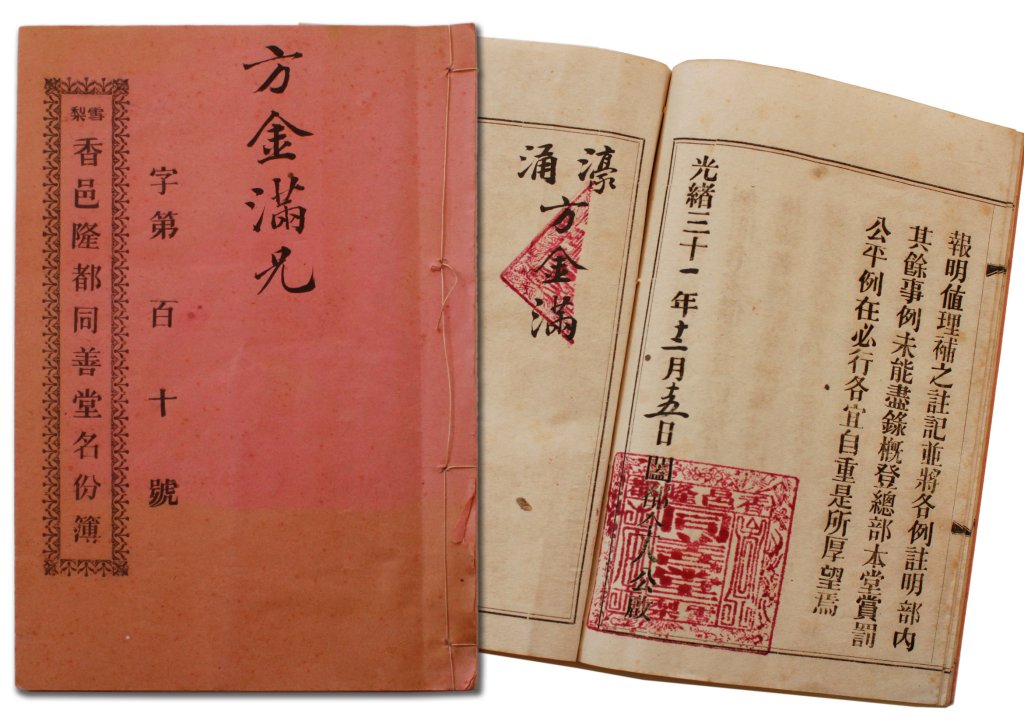 方金滿兄
字第百十號
雪梨
香邑隆都同善堂名份簿
報明值理補之註記並將各例註明部内
其餘事例未能盡錄概登總部本堂賞罰
公平例在必行各宜自重是所厚望焉
光緒三十一年十二月十五日闔 公啟
香邑隆都
同善堂
濠涌
方金滿